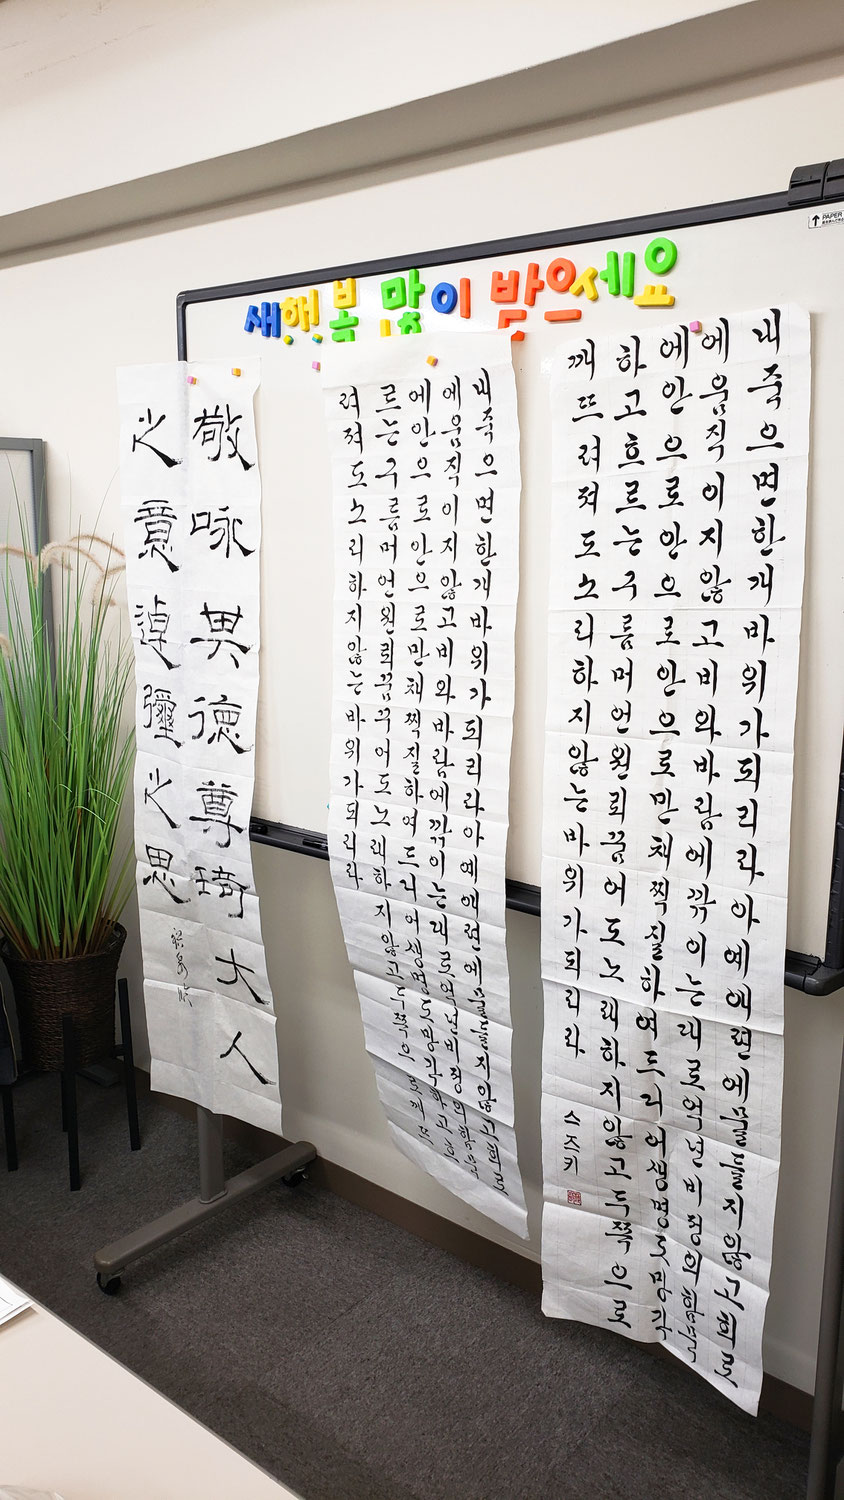 새해 복 많이 받으세요
PAPER
내죽으면한개바위가되리라아예애련에물들지않고희로
에움직이지않고비와바람에깎이는대로억년비정의함묵
에안으로안으로안으로만채찍질하여드디어생명도망각
하고흐르는구름머언원뢰꿈어도노래하지않고두쪽으로
깨뜨려져도소리하지않는바위가되리라
스즈키
내죽으면한개바위가되리라아예애련에물들지않고희로
에움직이지않고비와바람에깎이는대로억년비정의함묵
에안으로안으로만채찍질하여드디어생명도망각하고흐
르는구름머언원뢰꿈꾸어도노래하지않고두쪽으로깨뜨
려져도소리하지않는바위가되리라
敬咏異德尊琦大人
之意彌之思